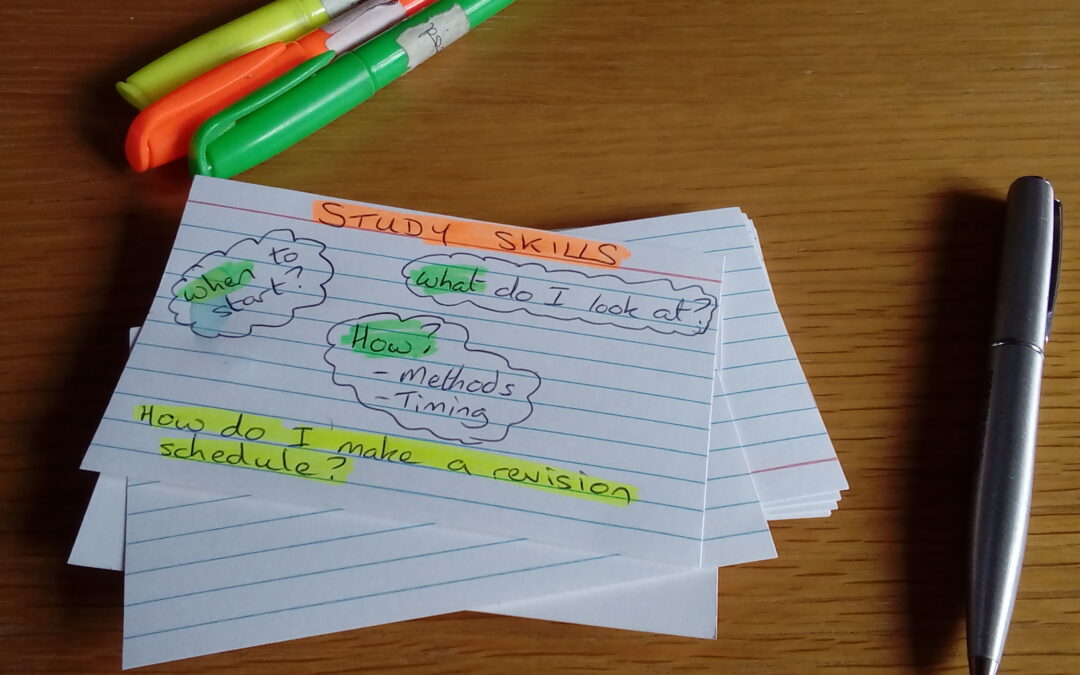 STUDY SKILLS
When to
start?
What do I look at?
How?
- Methods
- Timing
How do I make a revision
schedule?